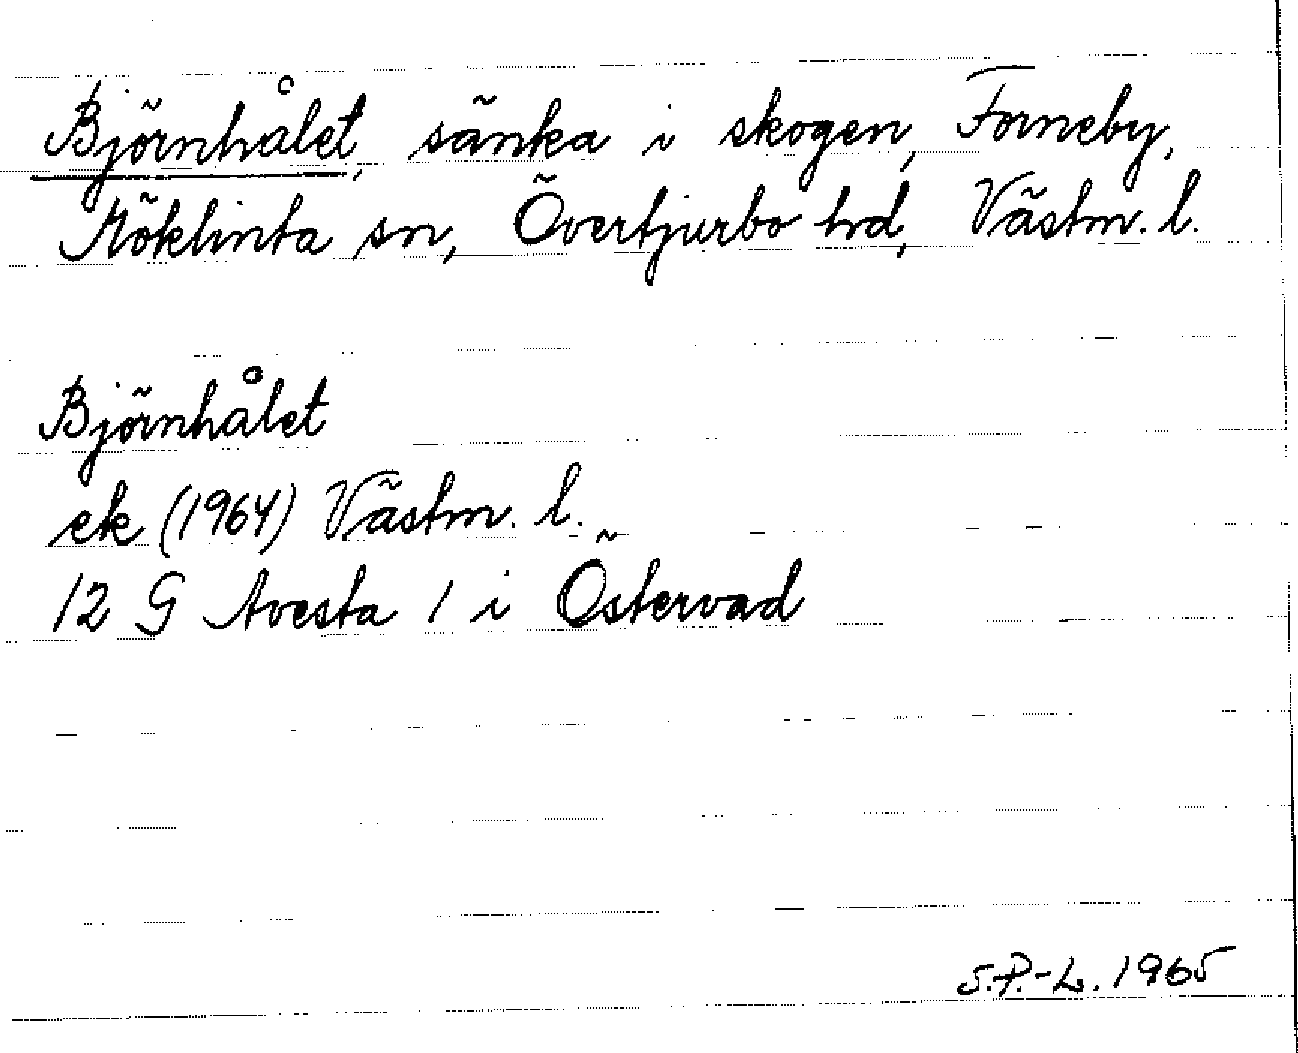 Björnhålet, sänka i skogen, Forneby,
Möklinta sn, Övertjurbo hd, Västm. l.
Björnhålet
ek (1964) Västm. l.
12 G Avesta 1 i Östervad
S.P.-L. 1965